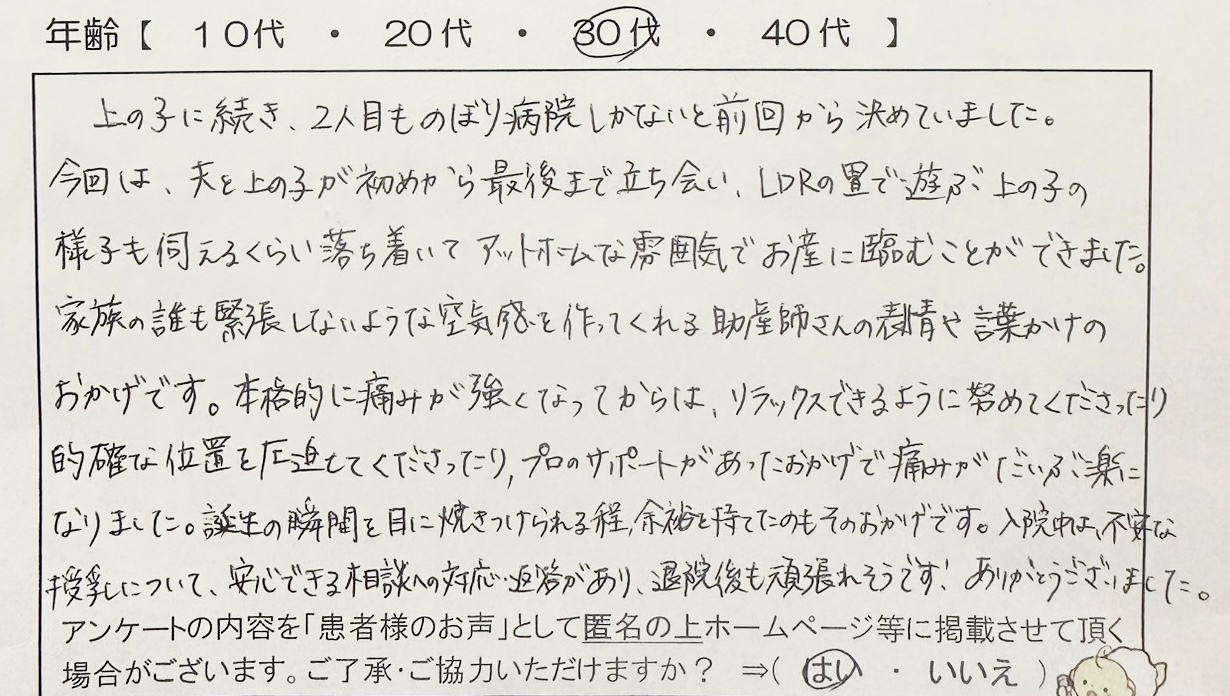 年齢【 10代 ・ 20代 ・ 30代 ・ 40代 】
上の子に続き、2人目ものぼり病院しかないと前回から決めていました。
今回は、夫と上の子が初めから最後まで立ち会い、LDRの畳で遊ぶ上の子の
様子も伺えるくらい落ち着いてアットホームな雰囲気でお産に臨むことができました。
家族の誰も緊張しないような空気感を作ってくれる助産師さんの表情や言葉かけの
おかげです。本格的に痛みが強くなってからは、リラックスできるように努めてくださったり
的確な位置を圧迫してくださったり,プロのサポートがあったおかげで痛みがだいぶ楽に
なりました。誕生の瞬間を目に焼きつけられる程,余裕を持てたのもそのおかげです。入院中は、不安な
授乳について、安心できる相談への対応・返答があり、退院後も頑張れそうです!ありがとうございました。
アンケートの内容を「患者様のお声」として匿名の上ホームページ等に掲載させて頂く
場合がございます。ご了承・ご協力いただけますか? ⇒( はい ・ いいえ )